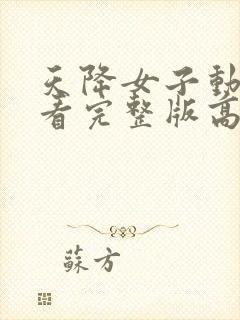 天降女子動
看完整版高
蘇方